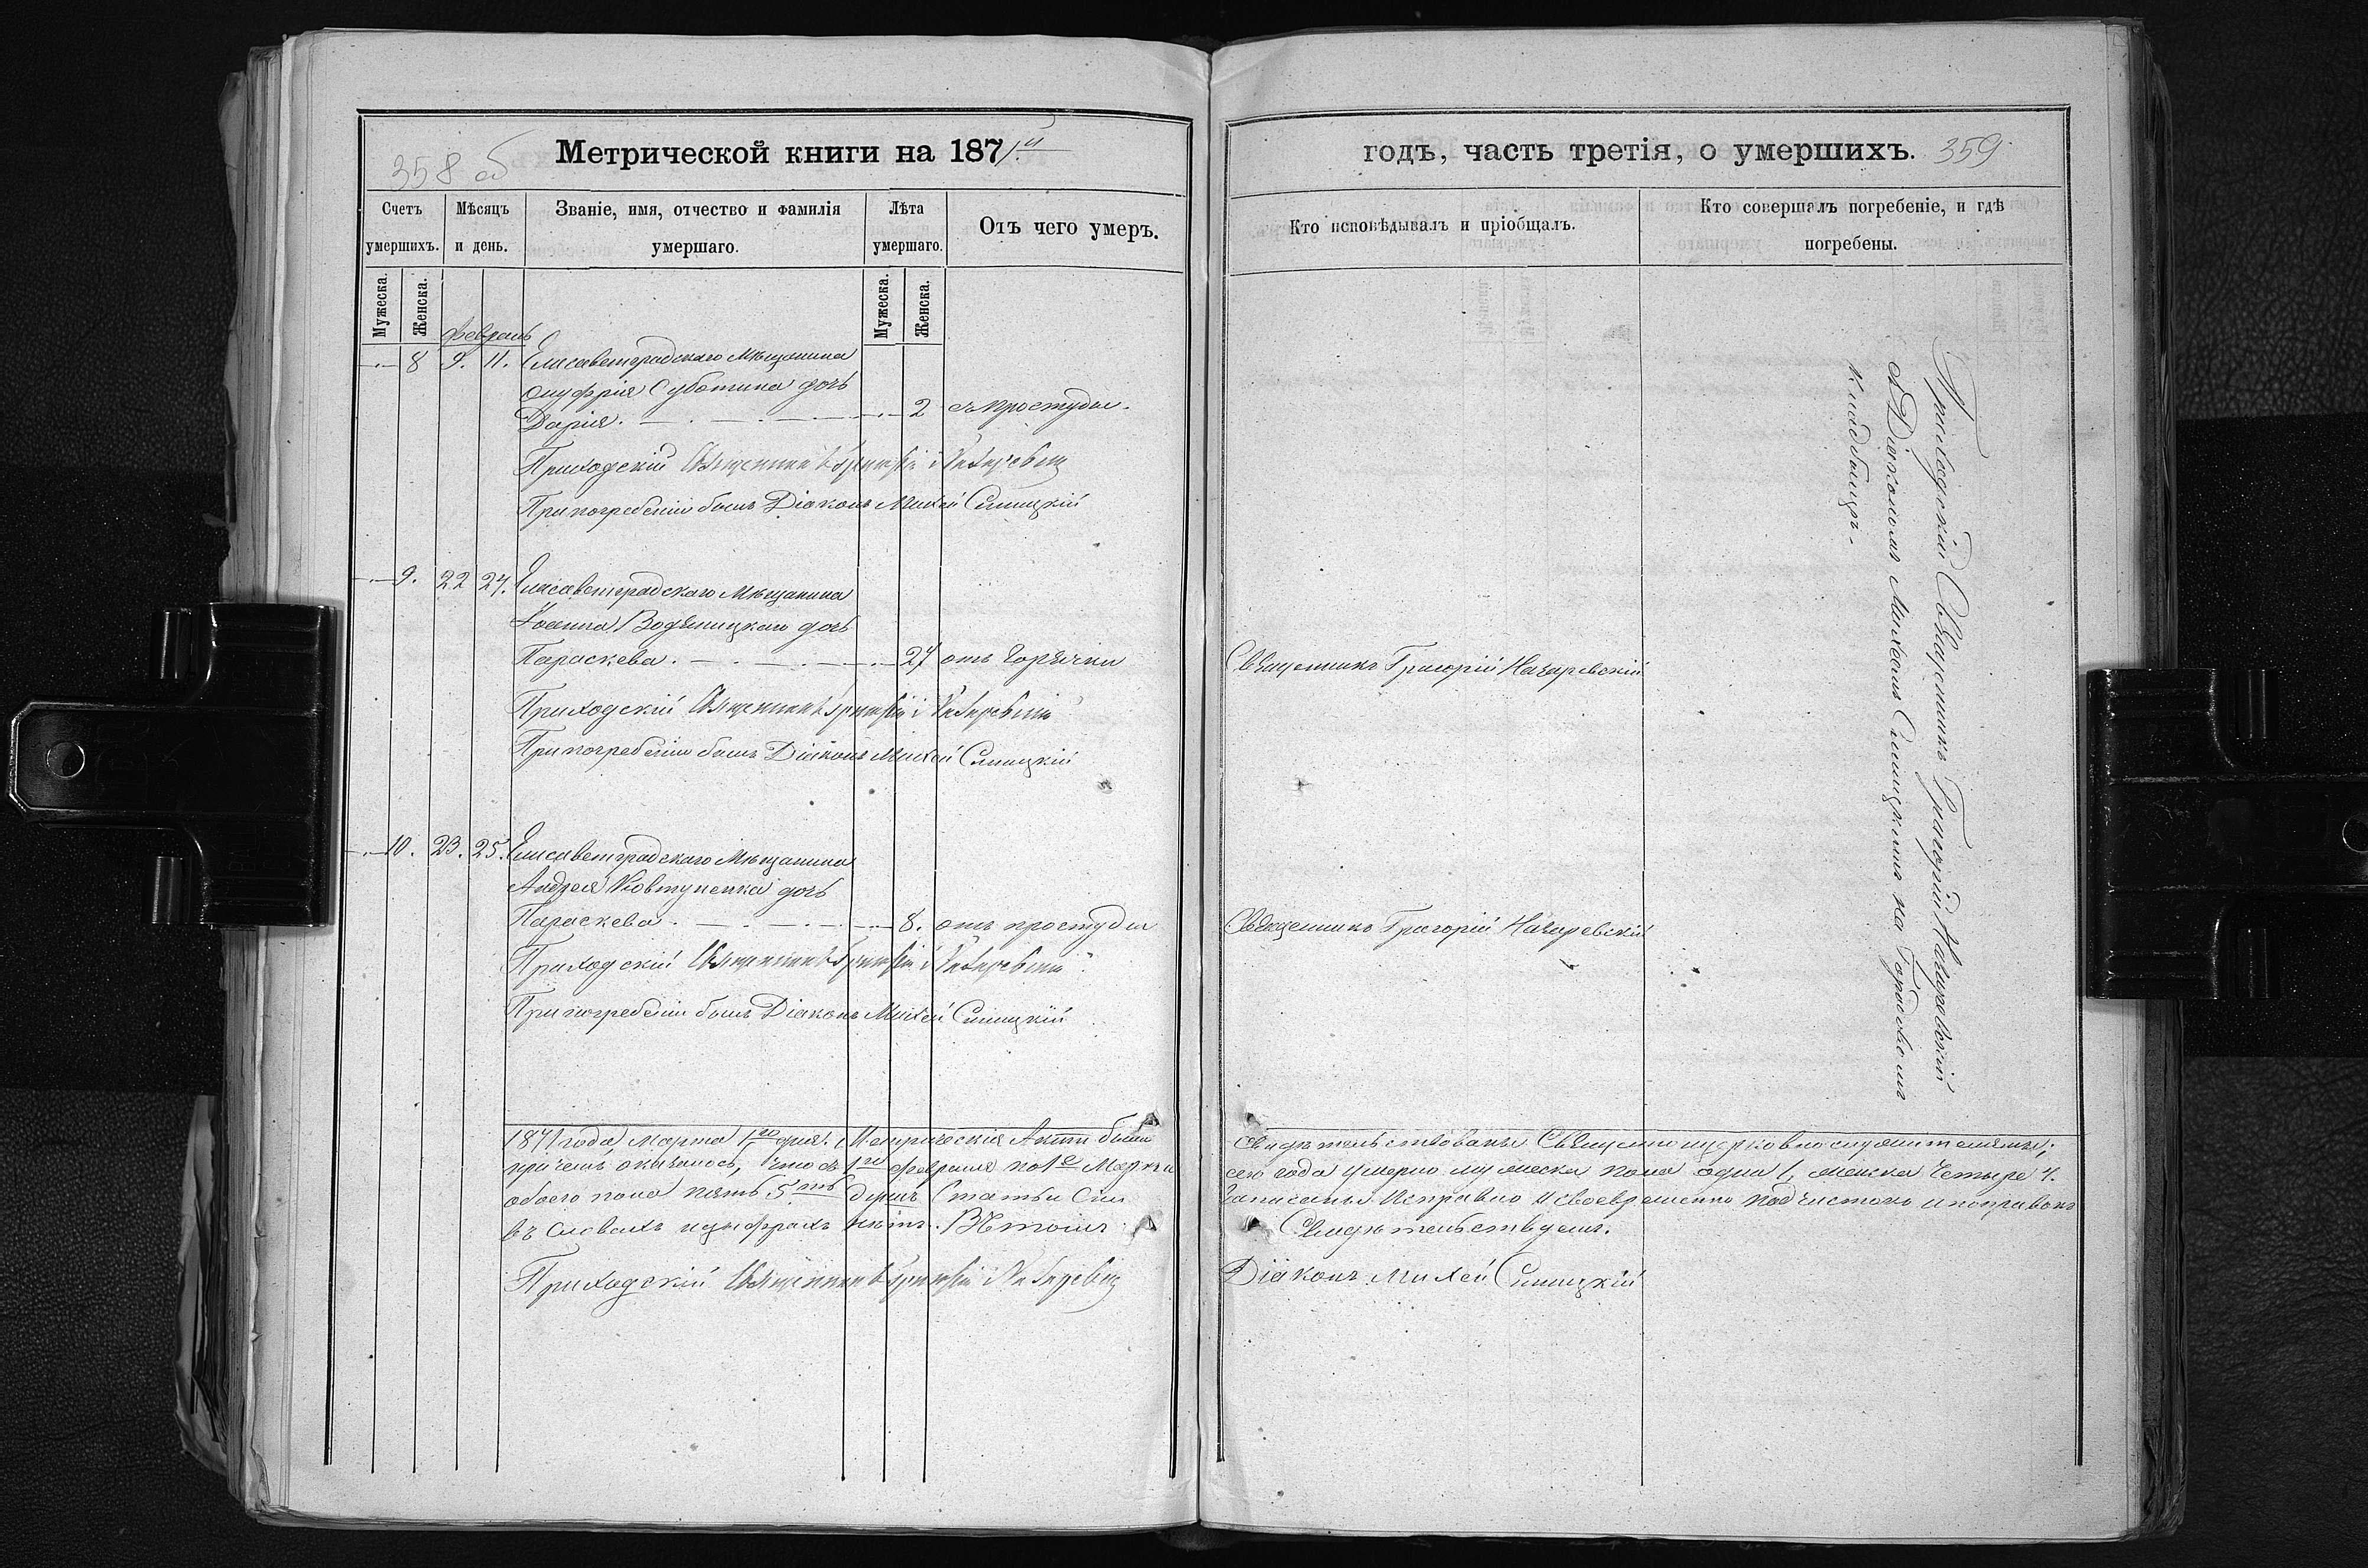 358 об
Метрической книги на 1871й
Счетъ умершихъ.
Мѣсяцъ и день.
Званіе, имя, отчество и фамилія умершаго.
Лѣта умершаго.
Отъ чего умеръ.
Мужеска.
Женска.
Мужеска.
Женска.
Февраль
8 9. 11. Елисаветградскаго Мѣщанина
Онуфрія Суботина дочь
Дарія. 2 съ простуды.
Приходскій Священникъ Григорій
При погребеніи былъ Діаконъ Михей Синицкій
9. 22 24. Елисаветградскаго Мѣщанина
Іоанна Водяницкаго дочь
Параскева. 24 отъ Горячки
Приходскій Священникъ Григорій
При погребеніи былъ Діаконъ Михей Синицкій
10. 23. 25. Елисаветградскаго Мѣщанина
Андрея Ковтуненка дочь
Параскева. 8. отъ простуды
Приходскій Священникъ Григорій
При погребеніи былъ Діаконъ Михей Синицкій
1871 года Марта 1го дня. Метрическія Акты были
при чемъ оказалось, что съ 1го февраля по 1е Марта
обоего пола пять 5ть душъ Статьи сіи
въ словахъ и цыфрахъ нѣтъ. Въ томъ
Приходскій Священникъ Григорій
годъ, часть третія, о умершихъ. 359
Кто исповѣдывалъ и пріобщалъ.
Кто совершалъ погребеніе, и гдѣ погребены.
Священникъ Григорій Назаревскій
Священникъ Григорій Назаревскій
Приходскій Священникъ Григорій Назаревскій
съ Діакономъ Михеемъ Синицкимъ на Городовомъ
Кладбищѣ.
свидѣтельствованы Священноцерковнослужителями;
сего года умерло мужеска пола одна 1, женска четыре 4.
записаны исправно и своевременно подчистокъ и поправокъ
Свидѣтельствуемъ.
Діаконъ Михей Синицкій